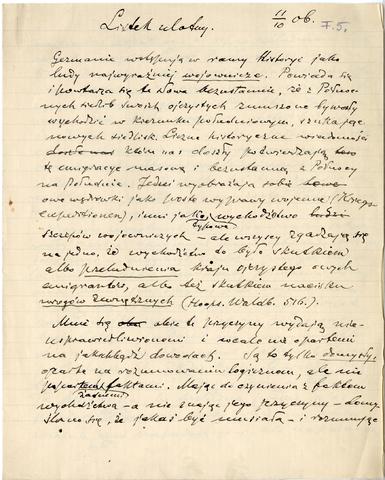 Listek ulotny. 11/10 06. F. 5.
Germanie wstępują w ramy Historyi jako
ludy najwyraźniej wojownicze. Powiada się
i powtarza się te słowa bezustannie, że z Północ
nych siedzib swoich ojczystych zmuszone bywały
wychodzić w kierunku południowym, szukając
nowych siedlisk. Liczne historyczne wiadomości
które nas doszły poświadczają
tę emigracyę masową i bezustanną z Północy
na Południe. Jedni wyobrażają sobie
owe wędrówki jako proste wyprawy wojenne (Kriegs
expeditionen), inni jako wychodźtwo
szczepów wojowniczych – ale wszyscy zgadzają się
na jedno, że wychodźtwo to było skutkiem
albo przeludnienia kraju ojczystego owych
emigrantów, albo też skutkiem nacisku
wrogów zewnętrznych (Hoops. Waldb. 516.).
Mnie się obie te przyczyny wydają nie-
usprawiedliwionemi i wcale nie opartemi
na jakichbądź dowodach. Są to tylko domysły,
oparte na rozumowaniu logicznem, ale nie
poparte żadnemi faktami. Mając do czynienia z faktem
wychodźtwa – a nie znając jego przyczyny – domy
ślano się, że jakaś być musiała – i rozumując